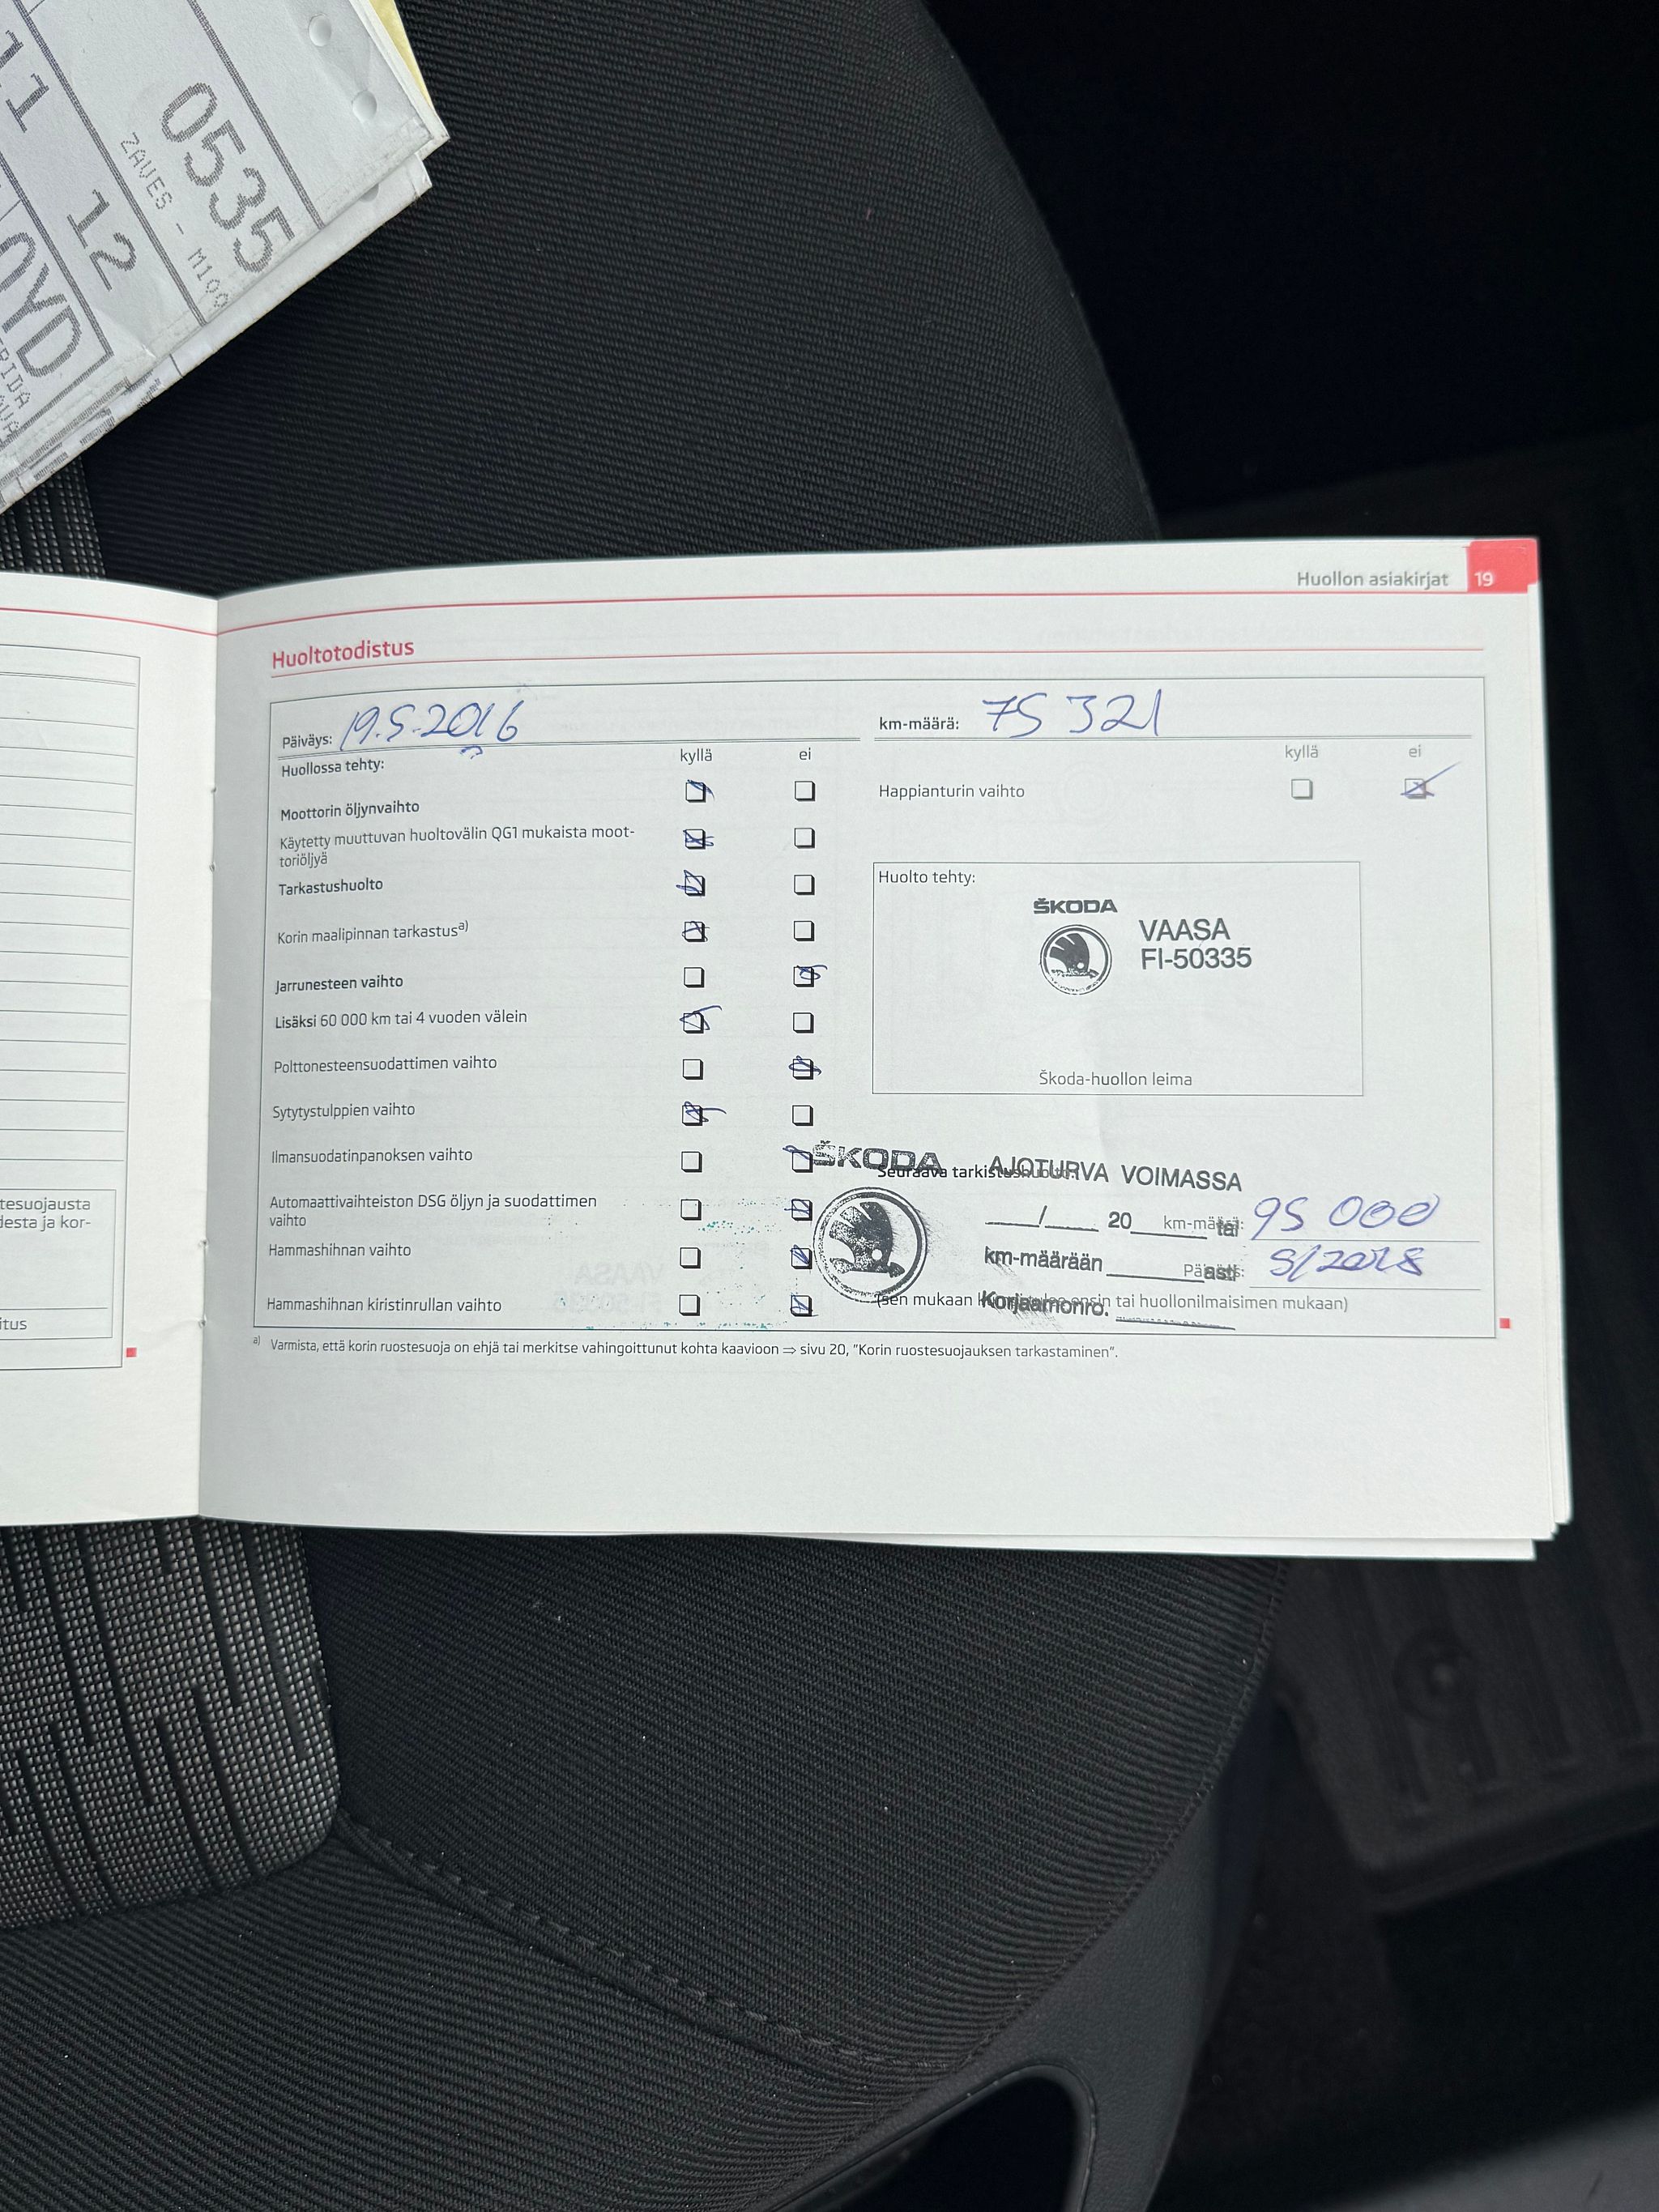 11
12
0535
ZAVES - M100
OYD
Huollon asiakirjat 19
Huoltotodistus
Päiväys: 19.5.2016
km-määrä: 75 321
Huollossa tehty:
kyllä ei
kyllä ei
Moottorin öljynvaihto
Happianturin vaihto
Käytetty muuttuvan huoltovälin QG1 mukaista moot-
toriöljyä
Tarkastushuolto
Huolto tehty:
ŠKODA
VAASA
FI-50335
Škoda-huollon leima
Korin maalipinnan tarkastus a)
Jarrunesteen vaihto
Lisäksi 60 000 km tai 4 vuoden välein
Polttonesteensuodattimen vaihto
Sytytystulppien vaihto
Ilmansuodatinpanoksen vaihto
Automaattivaihteiston DSG öljyn ja suodattimen
vaihto
Hammashihnan vaihto
Hammashihnan kiristinrullan vaihto
ŠKODA AJOTURVA VOIMASSA
Seuraava tarkistushuolto:
___/___ 20___ tai
km-määrä: 95 000
km-määrään ______ asti
Päiväys: 5/2018
(sen mukaan ensin tai huollonilmaisimen mukaan)
Korjaamonro.
a) Varmista, että korin ruostesuoja on ehjä tai merkitse vahingoittunut kohta kaavioon ⇒ sivu 20, "Korin ruostesuojauksen tarkastaminen".
tesuojausta
desta ja kor-
itus